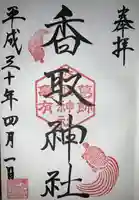 奉拝
香取神社
平成三十年四月一日